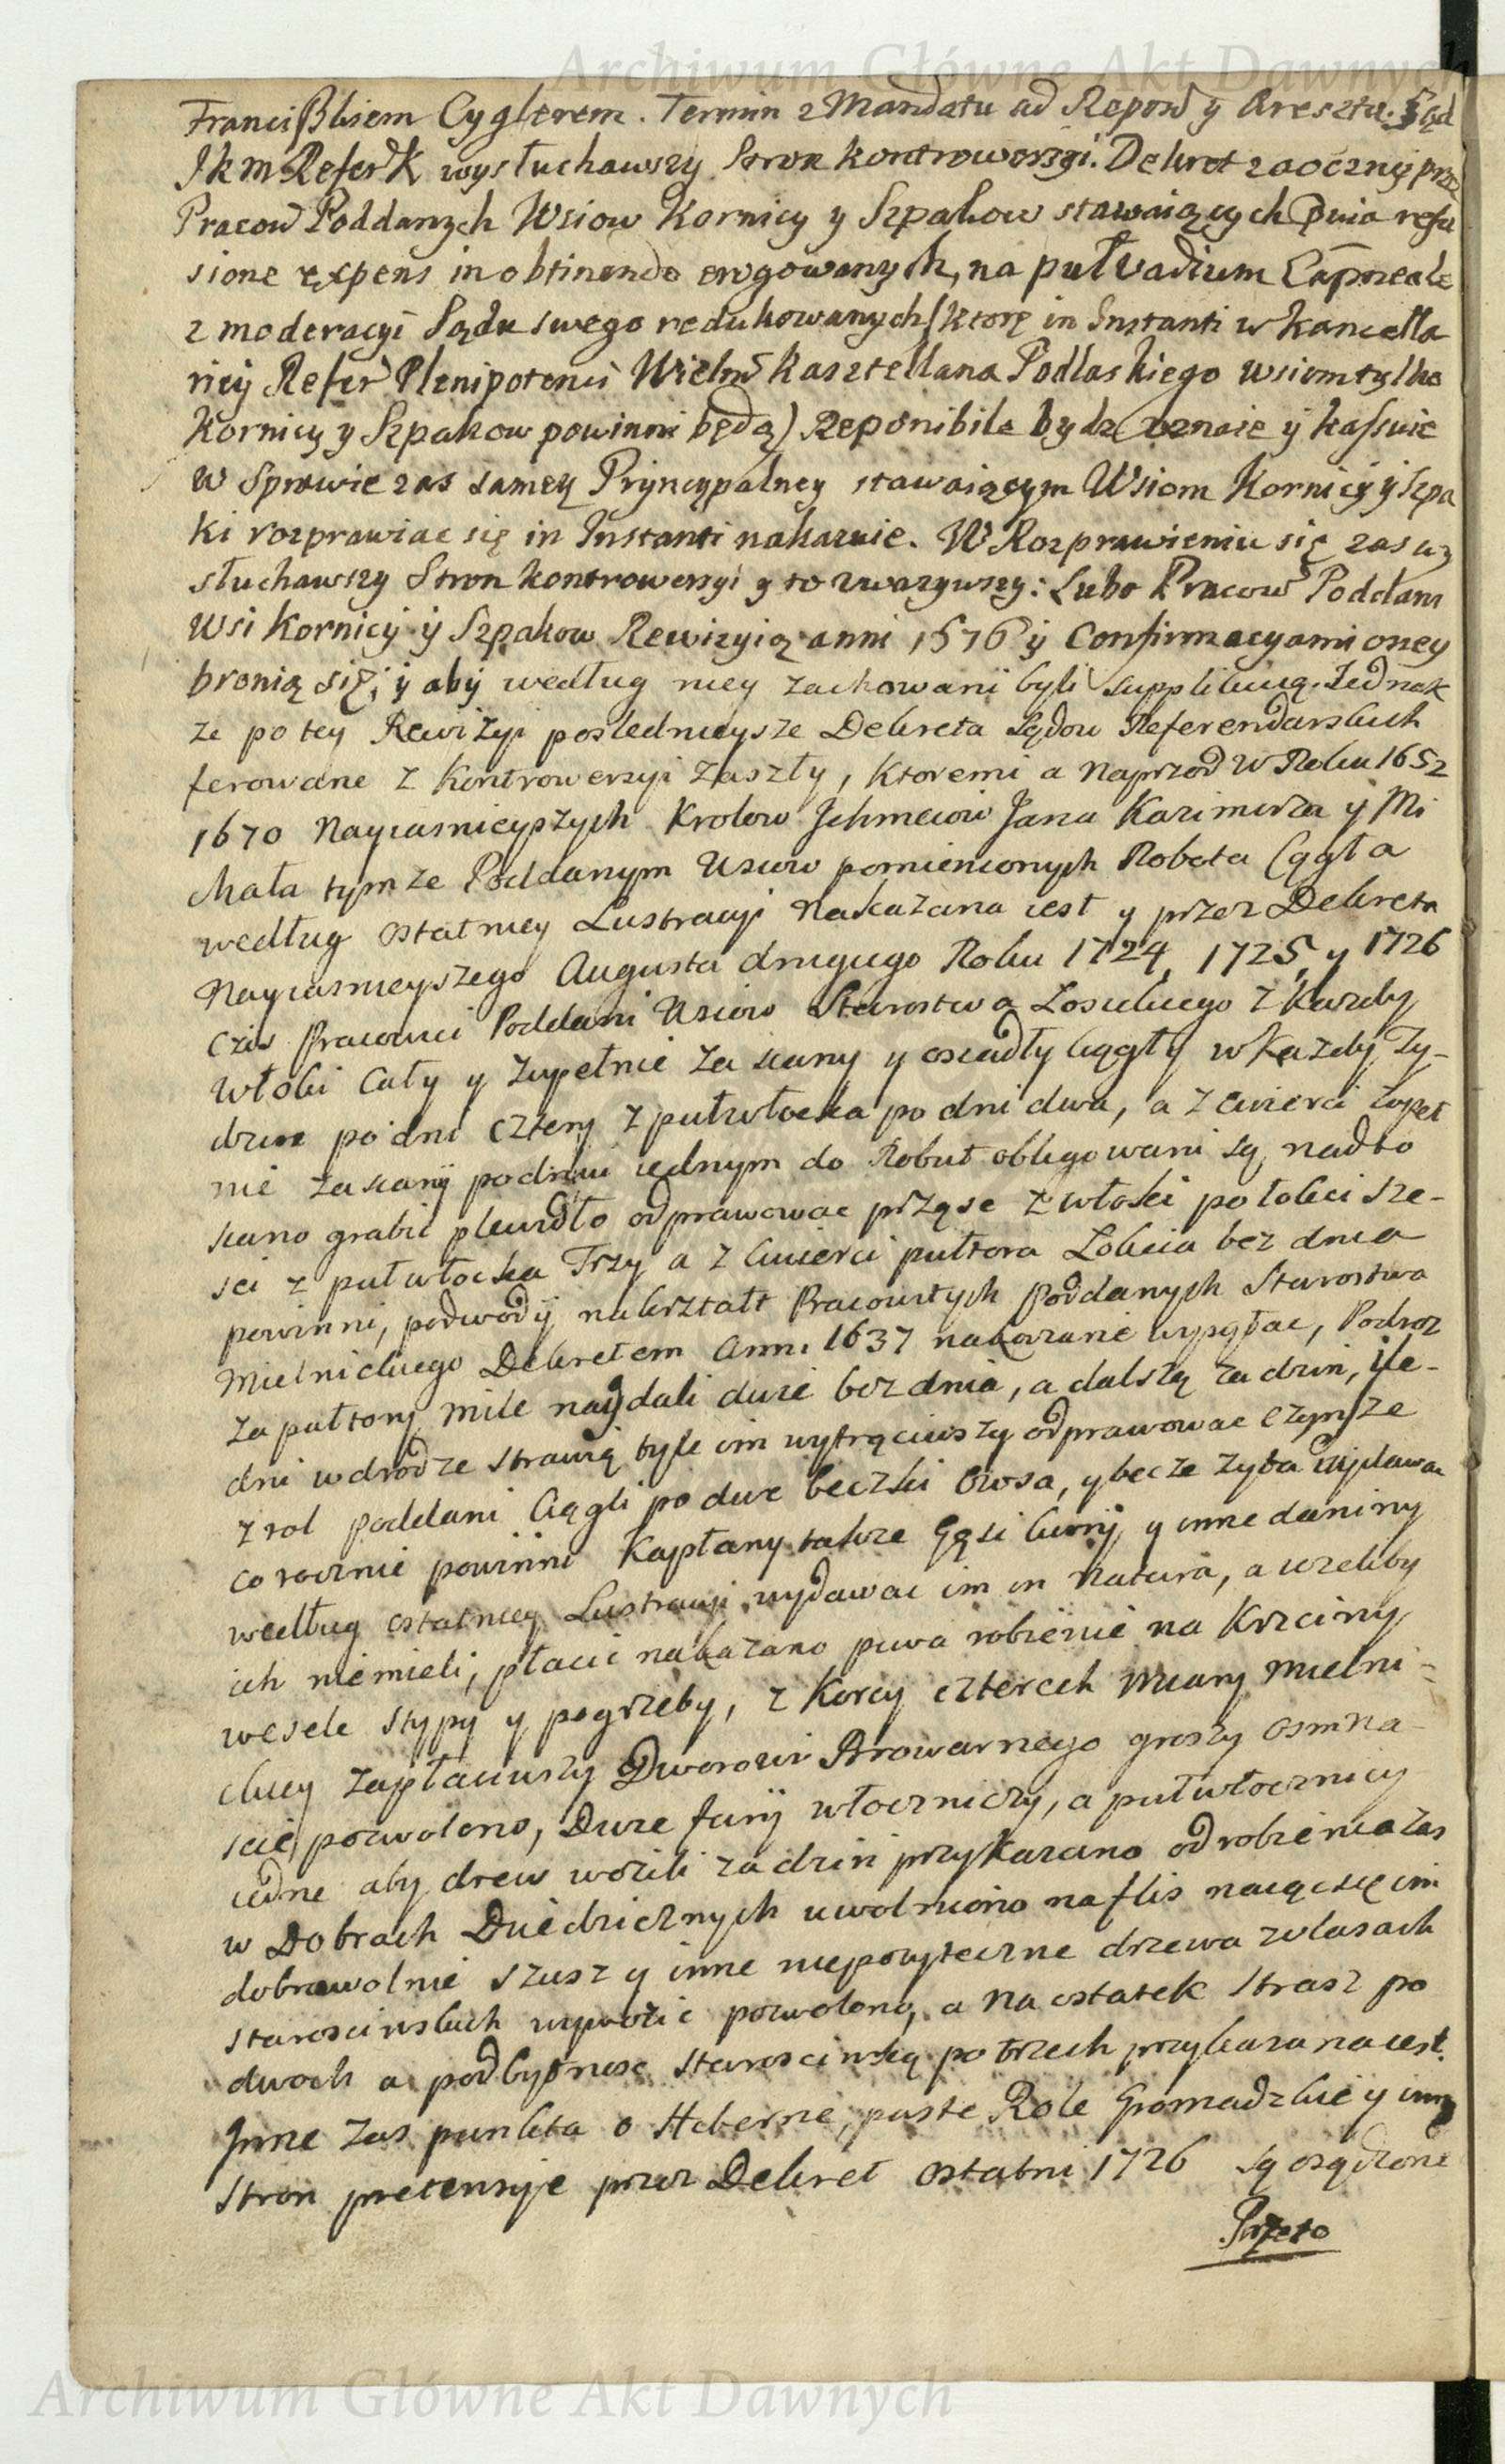 Archiwum Główne Akt Dawnych
Franciszkiem Cyglerem. Termin z Mandatu ad Repon̄ y Aresztu. Sąd
Jkm Refer̄ K wysłuchawszy Stron kontrowersyi. Dekret zaoczny prze
Pracow̄ Poddanych Wsiow Kornicy y Szpakow stawaiących dnia refu
sione expens in obtinendo erogowanych, na puł vadium
z moderacyi Sądu swego redukowanych (ktorę in Instanti w kancella
riey Refer̄ Plenipotenci Wielm̄ kasztellana Podlaskiego wsiom tylko
Kornicy y Szpakow powinni będą) Reponibile bydz uznaie ÿ kassuie
w Sprawie zas samey Pryncypalney stawaiącym Wsiom Kornicy ÿ Szpa
ki rozprawiac się in Instanti nakazuie. W Rozprawieniu się zas wy
słuchawszy Stron kontrowersyi y to zwazywszy: Lubo Pracow̄ Poddani
Wsi Kornicy ÿ Szpakow Rewizyią anni 1576 ÿ Confirmacyami oney
bronią się, ÿ abÿ według niey zachowani byli supplikuią. Jednak
ze po tey Rewizyi posledniejsze Dekreta Sądow Referendarskich
ferowane z Kontrowersyi zaszły, ktoremi a naprzod w Roku 1652
1670 Nayiasnieyszych Krolow Jchmciow Jana Kazimirza y Mi
chała tymze Poddanym Wsiow pomienionych Robota Cągła
według ostatniey Lustracyi nakazana iest y przez Dekreta
Nayiasnieyszego Augusta drugiego Roku 1724, 1725, y 1726
Ciz Pracowici Poddani Wsiow Starostwa Łosickiego z Kazdey
włoki Cały y zupełnie zasiany y osiadły Cągły w Kazdy Ty-
dzien po dni cztery z pułwłoczka po dni dwa, a z cwierci zupeł
nie zasianÿ po dniu iednym do Robut obligowani są, nadto
siano grabic plewidło odprawowac przęse z włoki po łokci sze-
sci z pułwłoczka Trzy a z Cwierci pułtora Łokcia bez dnia
powinni, podwodÿ na kształt Pracowitych Poddanych Starostwa
Mielnickiego Dekretem Anni 1637 nakazane wysyłac, Podroz
za pułtory mile naydali dwie bez dnia, a dalszą za dzien, ile-
dni w drodze strawią tyle im wytrąciwszy odprawowac czynsze
z rol poddani Cągli po dwie beczki Owsa, y becze zyta wydawac
co rocznie powinni Kapłany takze Gęsi kurÿ, y inne daniny
według ostatniey Lustracyi wydawac im in Natura, a iezeliby
ich niemieli, płacic nakazano piwa robienie na Krzciny
wesele stypy y pogrzeby, z Korcy czterech Miary Mielni-
ckiey zapłaciwszy Dworowi Browarnego groszy osmna-
scie, pozwolono, Dwie furÿ włoczniczy, a pułwłocznicy
iedne aby drew wozili za dzien przykazano od robienia zas
w Dobrach Dziedzicznych uwolniono na flis naiąc się im
dobrowolnie szusz y inne niepozyteczne drzewa z lasach
starosciński​ch wywozic pozwolono, a na ostatek Strasz po
dwoch a pod bytnosc Staroscinską po trzech przykazana iest.
Jnne zas punkta o Hiberne, puste Role Gromadzkie y inne
Stron pretensye przez Dekret ostatni 1726 są osądzone
Przeto
Archiwum Główne Akt Dawnych